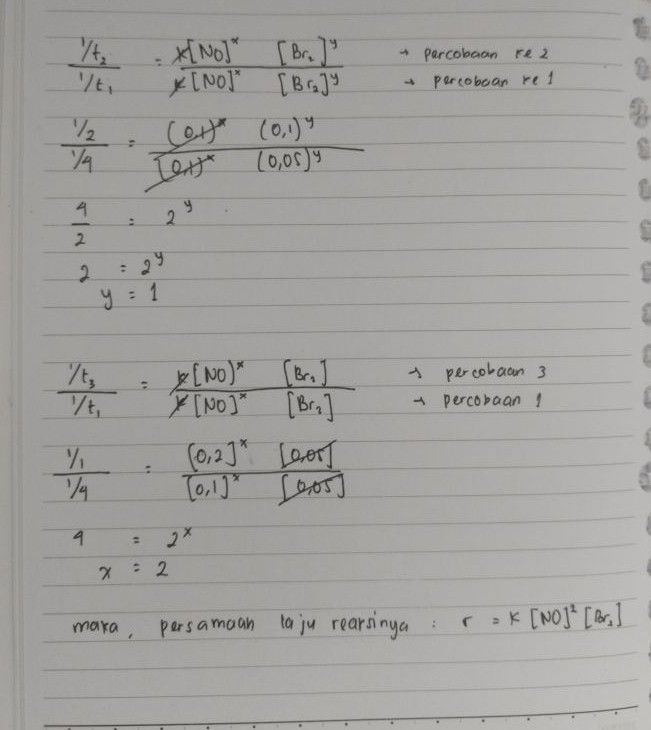 1/t₂ / 1/t₁ = k[NO]ˣ [Br₂]ʸ / k[NO]ˣ [Br₂]ʸ → percobaan ke 2 → percobaan ke 1
1/2 / 1/4 = (0,1)ˣ (0,1)ʸ / (0,1)ˣ (0,05)ʸ
4/2 = 2ʸ
2 = 2ʸ
y = 1
1/t₃ / 1/t₁ = k[NO)ˣ [Br₂] / k[NO]ˣ [Br₂] → percobaan 3 → percobaan 1
1/1 / 1/4 = [0,2]ˣ [0,05] / [0,1]ˣ [0,05]
4 = 2ˣ
x = 2
maka, persamaan laju reaksinya : r = k [NO]² [Br₂]